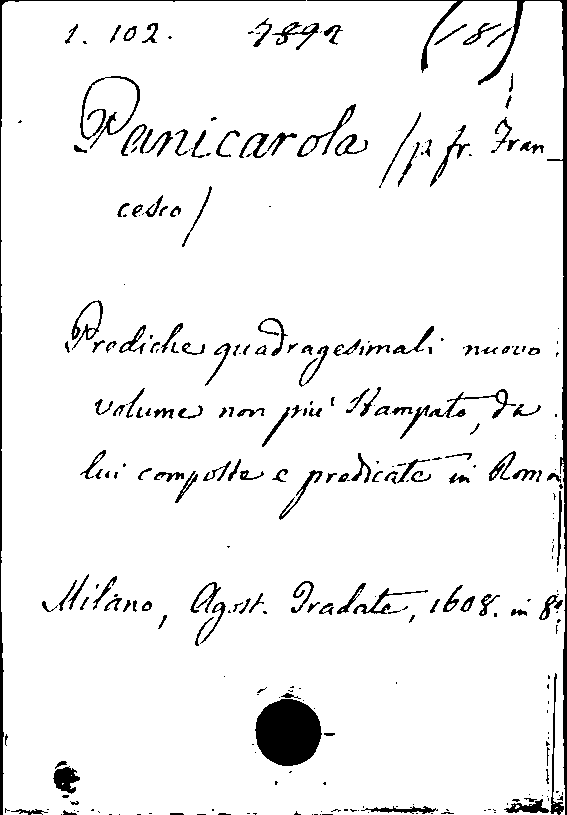 1. 102. 7892 (181)
Panicarola /p. fr. Fran_
cesco/
Prediche quadragesimali nuovo
volume non piu' stampato, da
lui composte e predicate in Roma
Milano, Agost. Tradate, 1608. in 8°